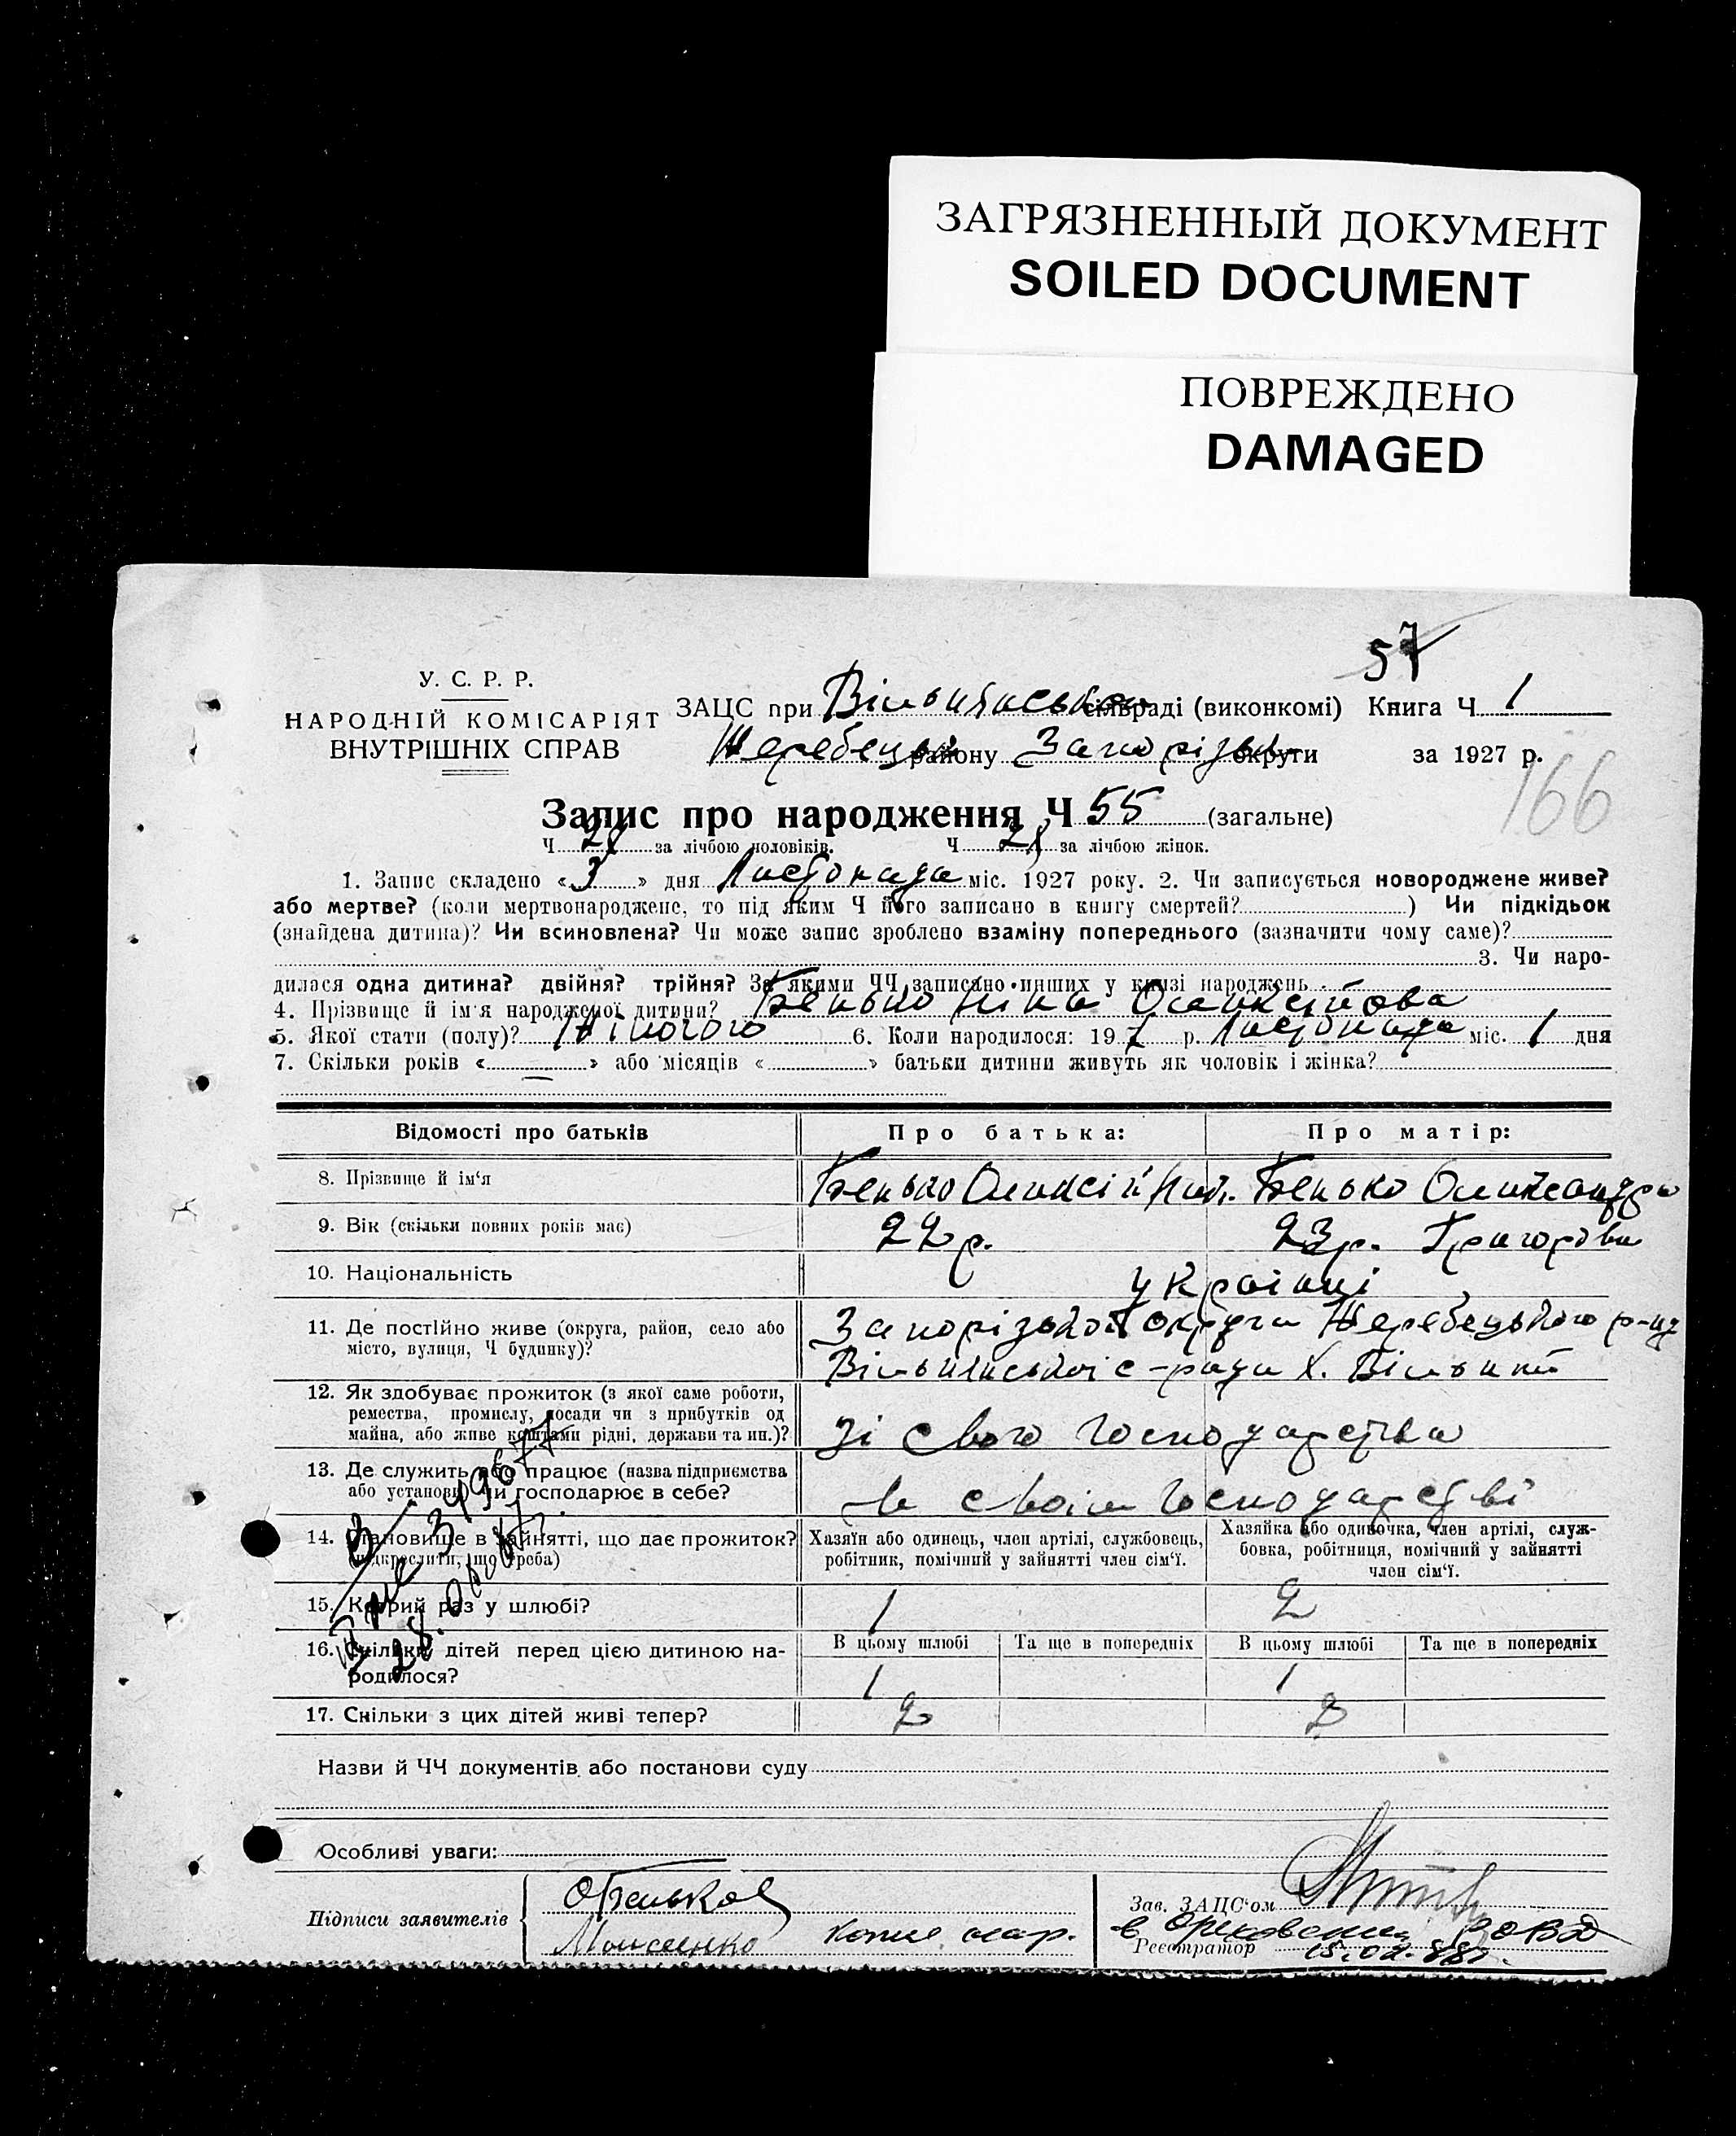 ЗАГРЯЗНЕННЫЙ ДОКУМЕНТ
SOILED DOCUMENT
ПОВРЕЖДЕНО
DAMAGED
57
У. С. Р. Р.
НАРОДНІЙ КОМІСАРІЯТ
ВНУТРІШНІХ СПРАВ
ЗАЦС при Вільнянській сільраді (виконкомі) Книга Ч 1
Жеребецьк району Запорізьк округи за 1927 р.
166
Запис про народження Ч 55 (загальне)
Ч за лічбою чоловіків. Ч за лічбою жінок.
1. Запис складено «3» дня Листопада міс. 1927 року. 2. Чи записується новороджене живе?
або мертве? (коли мертвонароджене, то під яким Ч його записано в книгу смертей? ) Чи підкідьок
(знайдена дитина)? Чи всиновлена? Чи може запис зроблено взаміну попереднього (зазначити чому саме)?
3. Чи наро-
дилася одна дитина? двійня? трійня? За якими ЧЧ записано инших у книзі народжень
4. Прізвище й ім'я народженої дитини? Бенько Ніна Олексійова
5. Якої стати (полу)? Жіночого 6. Коли народилося: 197 р. Листопада міс. 1 дня
7. Скільки років « — » або місяців « » батьки дитини живуть як чоловік і жінка?
Відомості про батьків Про батька: Про матір:
8. Прізвище й ім'я Бенько Олексій Бенько Олександра
9. Вік (скільки повних років має) 22 р. 23 р. Григорова
10. Національність українці
11. Де постійно живе (округа, район, село або Запорізької округи Жеребецького р-ну
місто, вулиця, Ч будинку)? Вільнянської с-ради х. Вільний
12. Як здобуває прожиток (з якої саме роботи,
ремества, промислу, посади чи з прибутків од
майна, або живе коштами рідні, держави та ин.)? Зі свого господарства
13. Де служить або працює (назва підприємства
або установи) чи господарює в себе? в своїм господарстві
14. Становище в зайнятті, що дає прожиток? Хазяїн або одинець, член артілі, службовець, Хазяйка або одиночка, член артілі, служ-
(підкреслити, що треба) робітник, помічний у зайнятті член сім'ї. бовка, робітниця, помічний у зайнятті
член сім'ї.
15. Котрий раз у шлюбі? 1 2
16. Скільки дітей перед цією дитиною на- В цьому шлюбі Та ще в попередніх В цьому шлюбі Та ще в попередніх
родилося? 1 1
17. Скільки з цих дітей живі тепер? 2 2
Назви й ЧЧ документів або постанови суду
Особливі уваги:
Підписи заявителів О Бенько
Моисеенко
Зав. ЗАЦС'ом
в Ореховский
Реєстратор 15.02.88г.